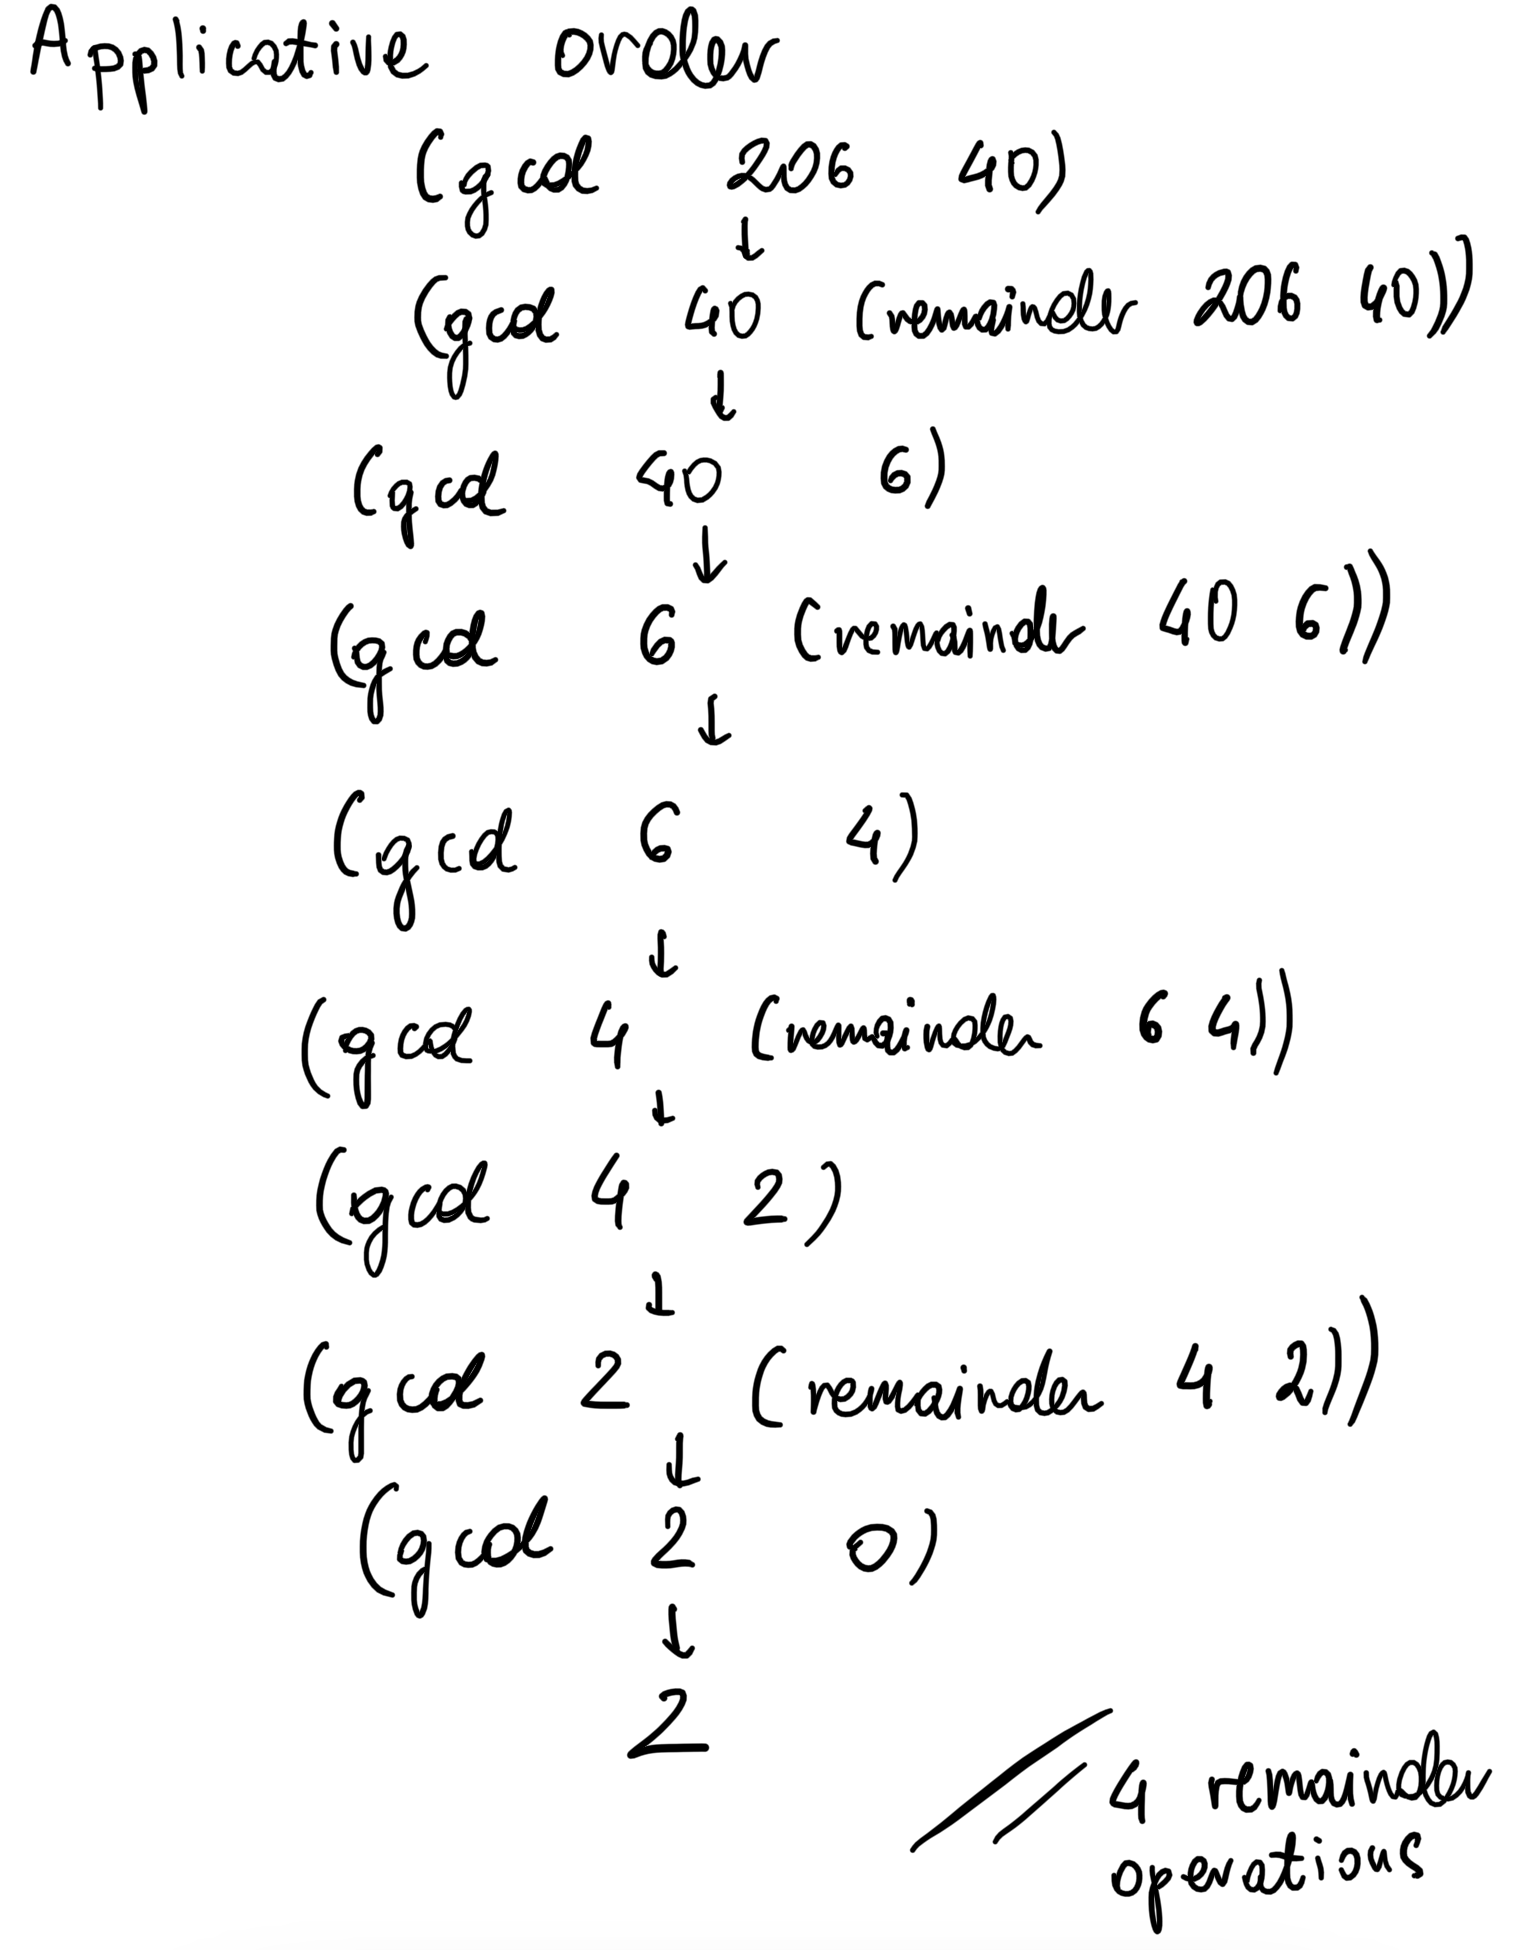 Applicative order
(gcd 206 40)
↓
(gcd 40 (remainder 206 40))
↓
(gcd 40 6)
↓
(gcd 6 (remainder 40 6))
↓
(gcd 6 4)
↓
(gcd 4 (remainder 6 4))
↓
(gcd 4 2)
↓
(gcd 2 (remainder 4 2))
↓
(gcd 2 0)
↓
2
// 4 remainder
operations